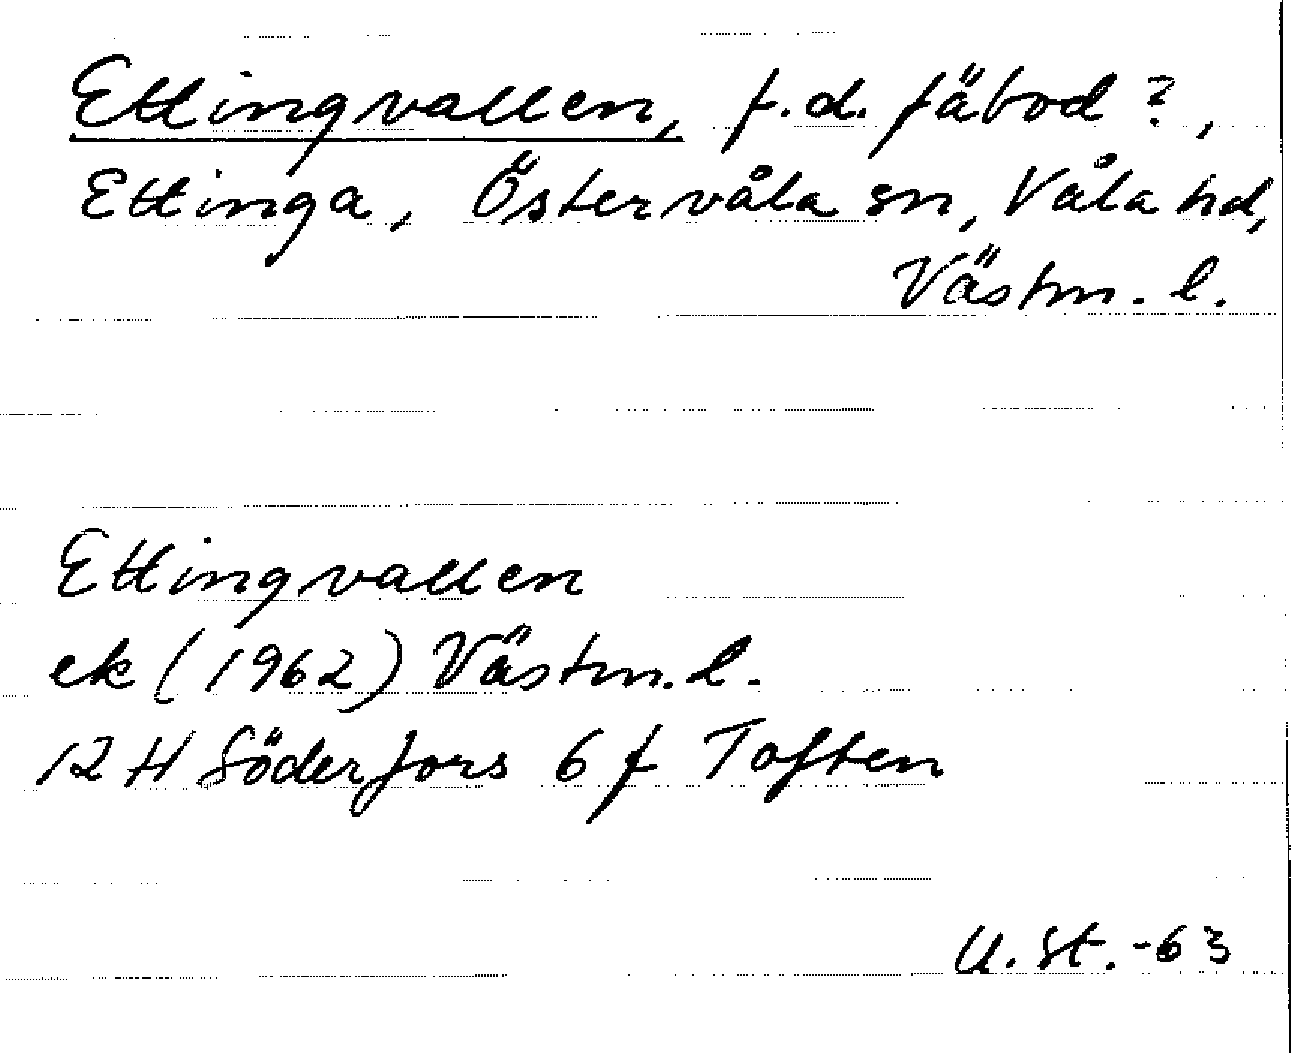 Ettingvallen, f.d. fäbod?,
Ettinga, Östervåla sn, Våla hd,
Västm. l.
Ettingvallen
ek (1962) Västm. l.
12 H Söderfors 6 f Toften
U. St. -63